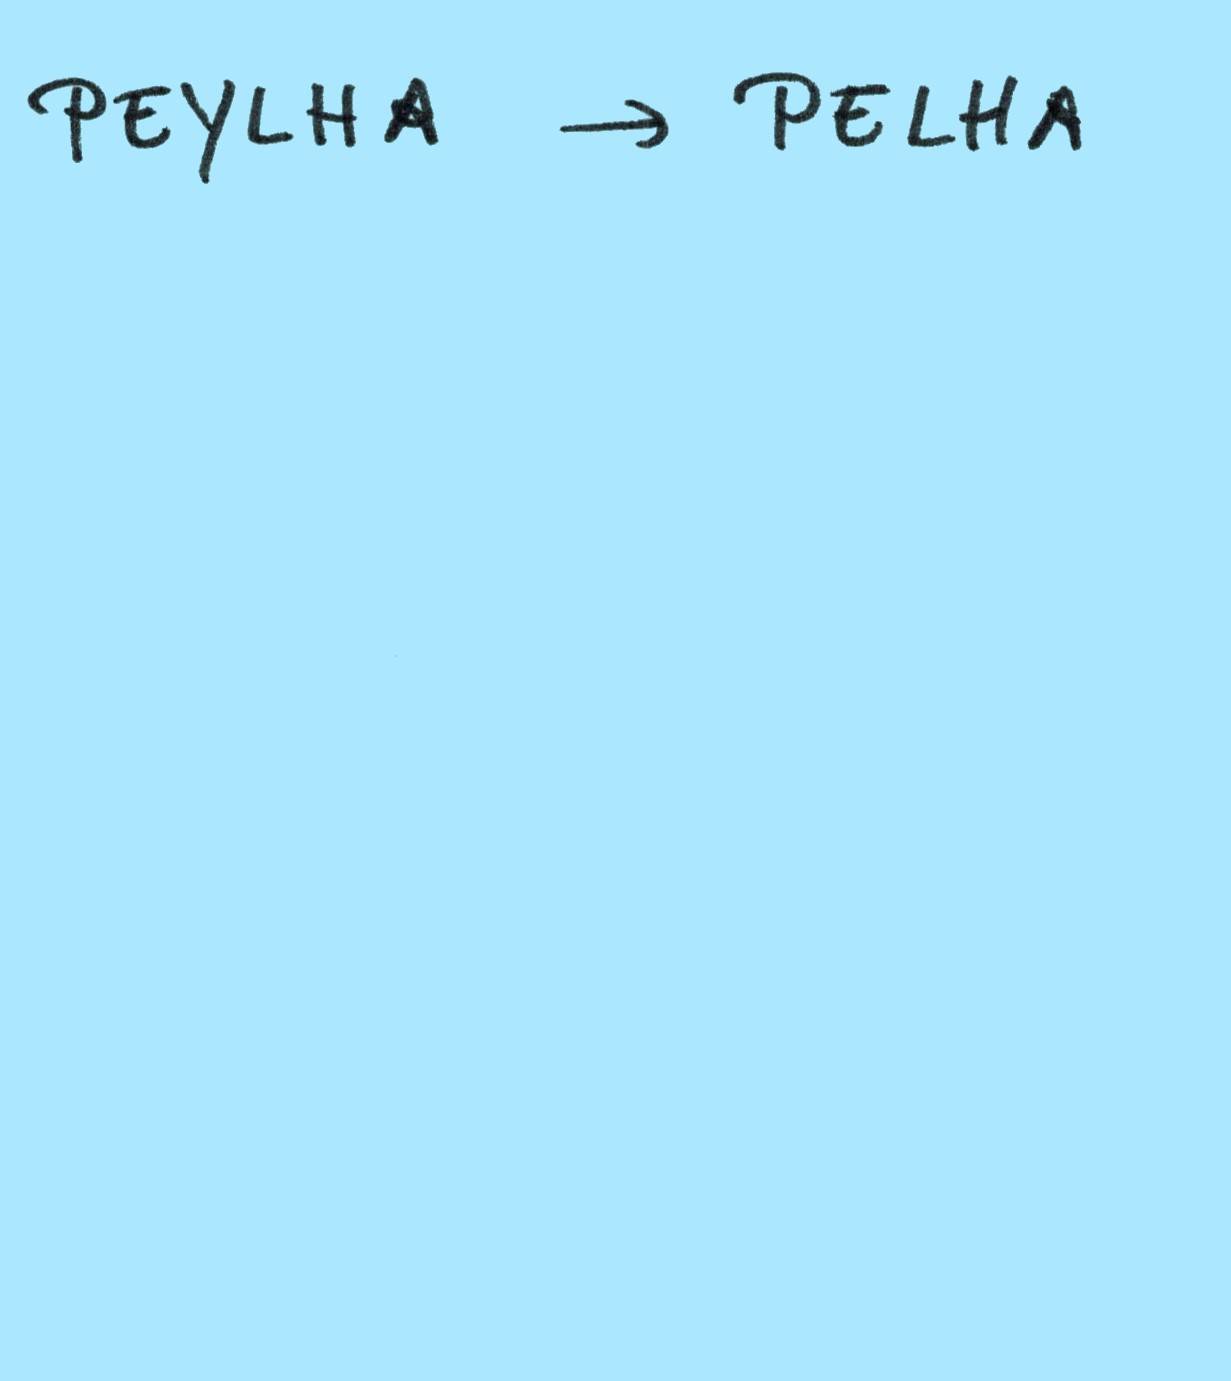 PEYLHA → PELHA